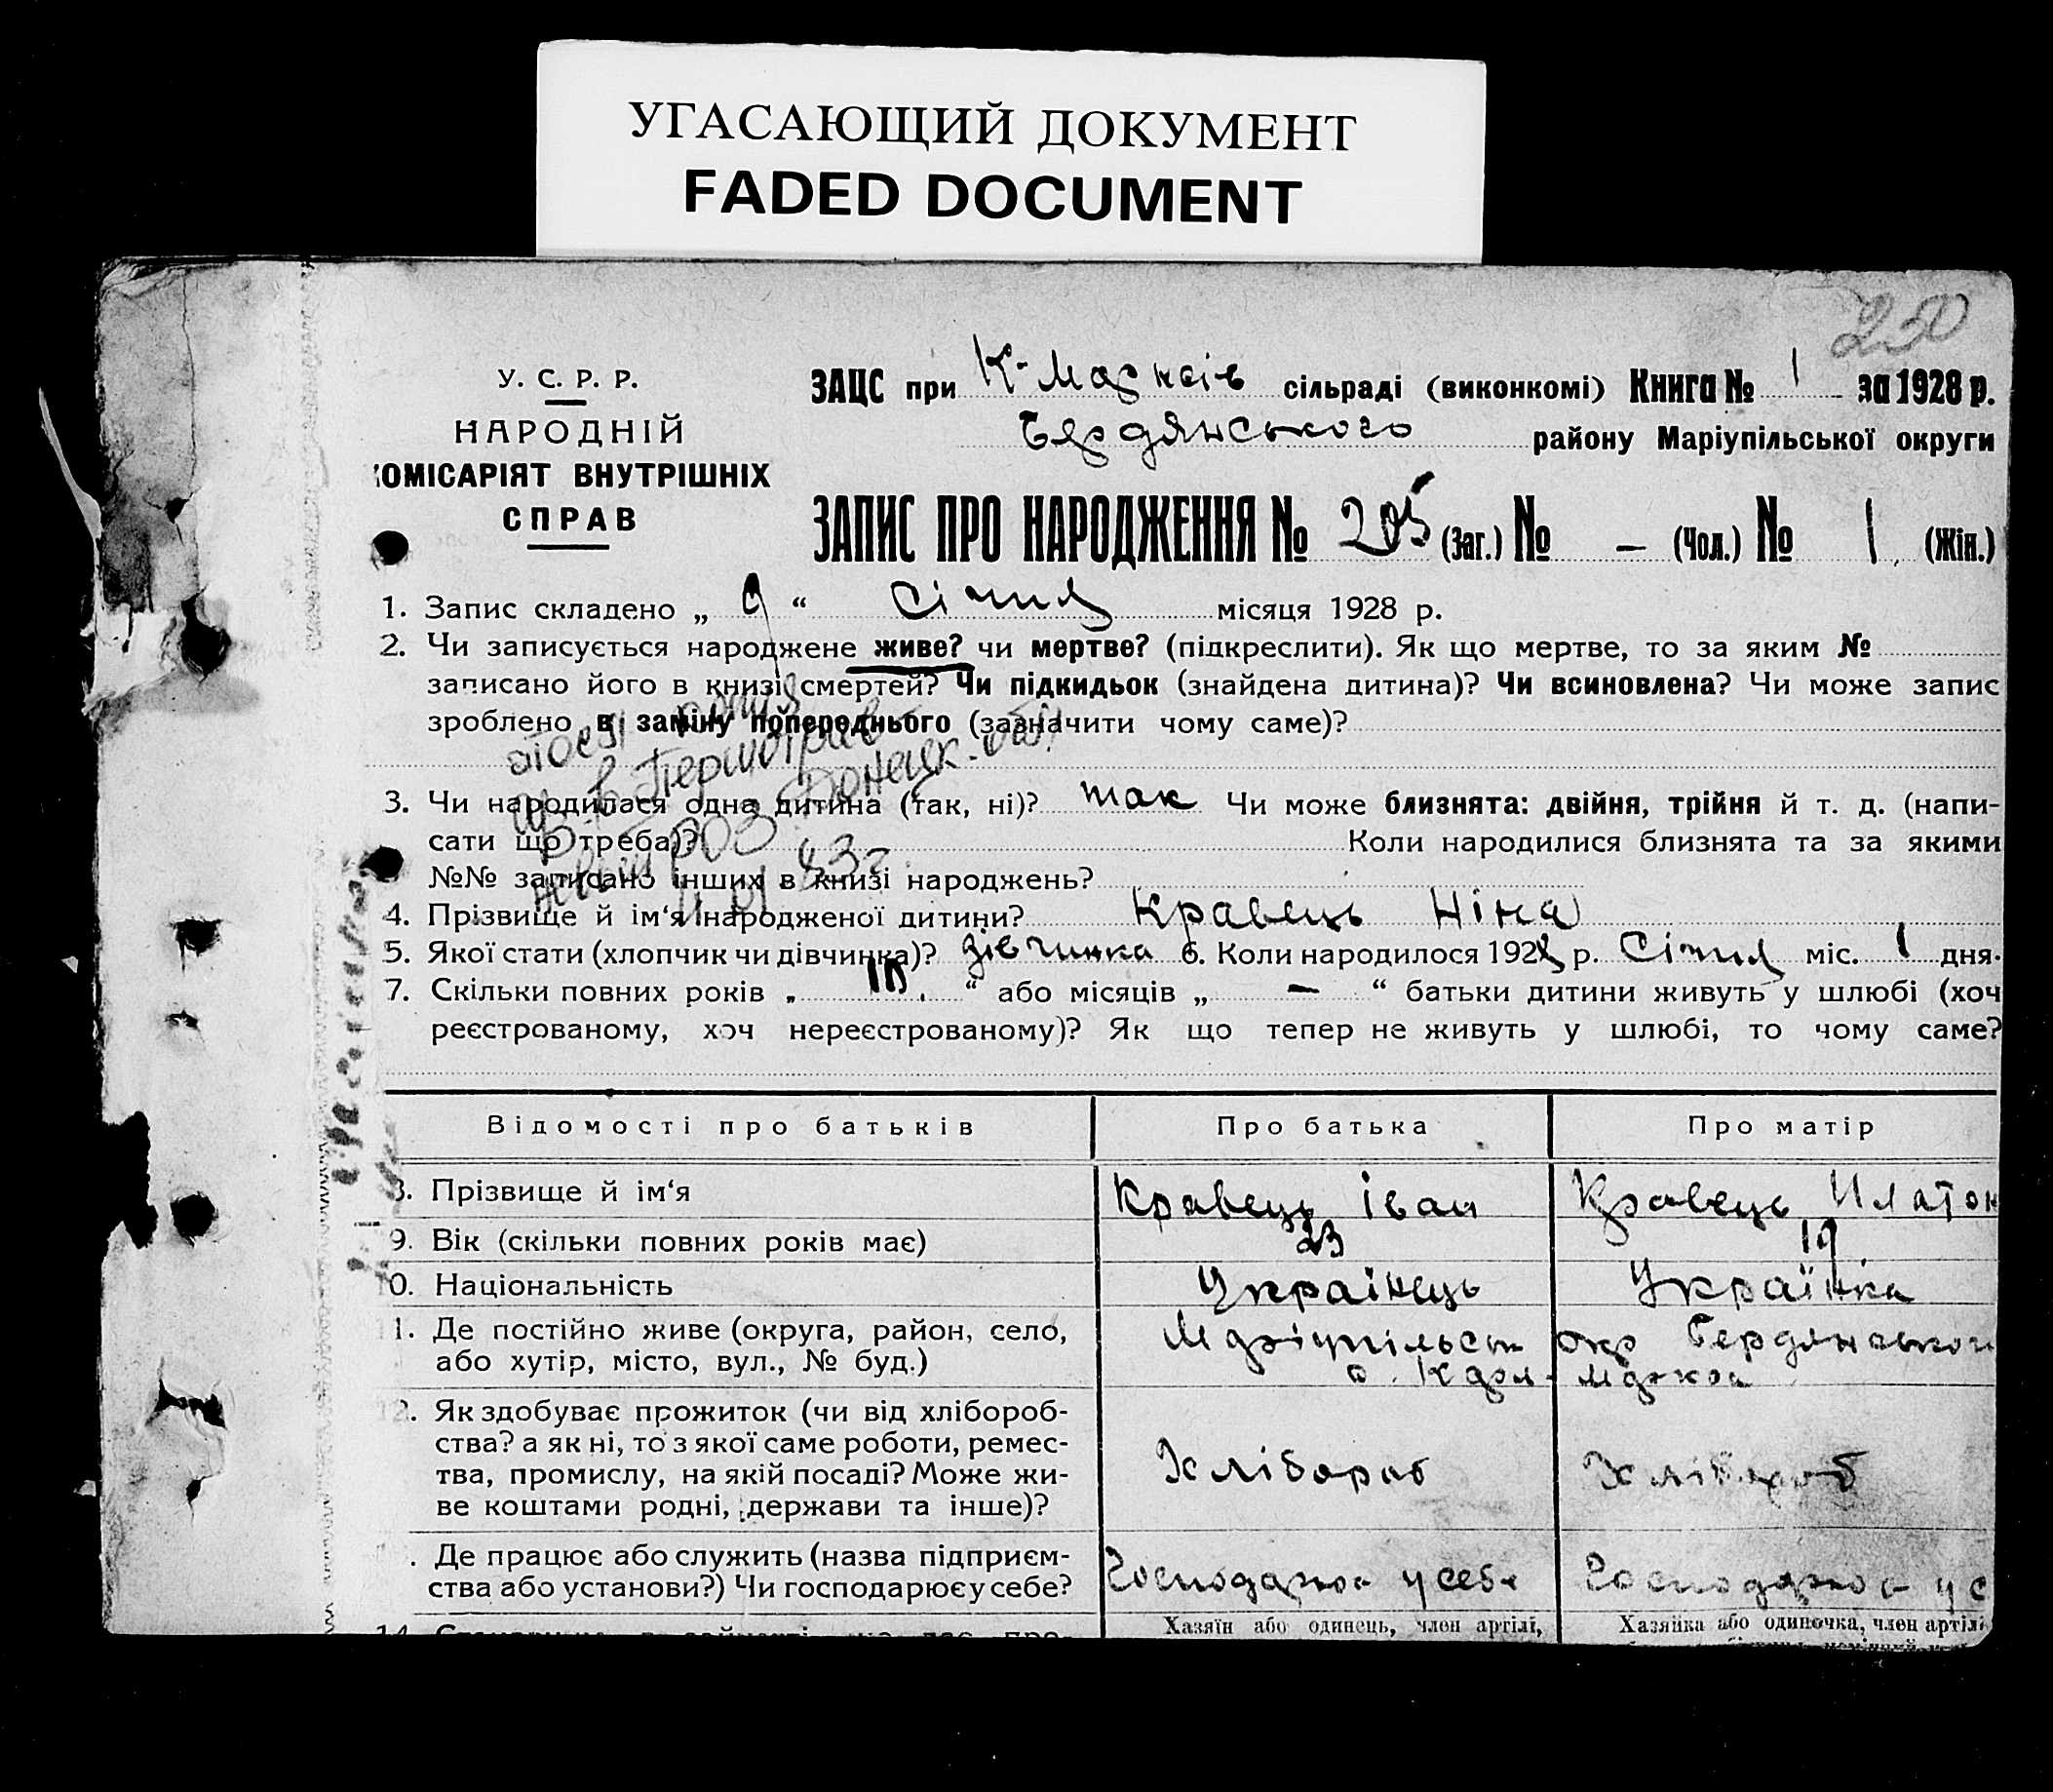 УГАСАЮЩИЙ ДОКУМЕНТ
FADED DOCUMENT
250
У. С. Р. Р.
НАРОДНІЙ
КОМІСАРІЯТ ВНУТРІШНІХ
СПРАВ
ЗАЦС при К-Марксів сільраді (виконкомі) Книга № 1 за 1928 р.
Бердянського району Маріупільської округи
ЗАПИС ПРО НАРОДЖЕННЯ № 205 (Заг.) № — (Чол.) № 1 (Жін.)
1. Запис складено „ 9 “ Січня місяця 1928 р.
2. Чи записується народжене живе? чи мертве? (підкреслити). Як що мертве, то за яким №
записано його в книзі смертей? Чи підкидьок (знайдена дитина)? Чи всиновлена? Чи може запис
зроблено в заміну попереднього (зазначити чому саме)?
Донецк. обл
3. Чи народилася одна дитина (так, ні)? так Чи може близнята: двійня, трійня й т. д. (напи-
сати що треба)? Коли народилися близнята та за якими
83г.
№№ записано інших в книзі народжень?
4. Прізвище й ім‘я народженої дитини? Кравець Ніна
5. Якої стати (хлопчик чи дівчинка)? дівчинка 6. Коли народилося 1928 р. Січня міс. 1 дня.
7. Скільки повних років „ “ або місяців „ — “ батьки дитини живуть у шлюбі (хоч
реєстрованому, хоч нереєстрованому)? Як що тепер не живуть у шлюбі, то чому саме?
Відомості про батьків Про батька Про матір
8. Прізвище й ім‘я Кравець Іван Кравець Платон
9. Вік (скільки повних років має) 23 19
10. Національність Українець Українка
11. Де постійно живе (округа, район, село, Маріупільськ окр Бердянськог
або хутір, місто, вул., № буд.) с. Карл-Маркса
12. Як здобуває прожиток (чи від хлібороб-
ства? а як ні, то з якої саме роботи, ремес-
тва, промислу, на якій посаді? Може жи- Хлібороб Хлібороб
ве коштами родні, держави та інше)?
. Де працює або служить (назва підприєм-
ства або установи?) Чи господарює у себе? Господарює у себе Господарює у с
Хазяїн або одинець, член артілі, Хазяйка або одиночка, член артілі